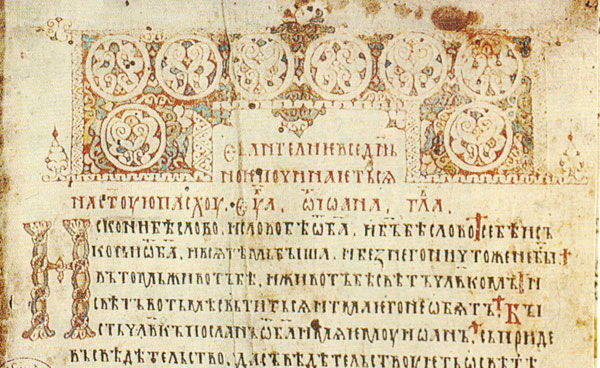 ЕѴАНГЕЛИѤВСЕДЬНЬ
НОѤПОЧИНАѤТЬСѦ
НАСТОУЮПАСХОУ. ЕѴА. ѾИОАНА. ГЛА.
ИСКОНИБѢСЛОВО. ИСЛОВОБѢѾБА. ИБЪБѢСЛОВО СЕБѢИС
КОНИѾБА. ИВЬСѦТѢМЬБЫША. ИБЕЗНЕГОНИЧТОЖЕНЕБЫ
ВЪТОМЬЖИВОТЪБѢ. ИЖИВОТЪБѢСВѢТЪЧЛВКОМЪ И
СВѢТЪВОТЬМѢСВЬТИТЬСѦИТЬМАѤГОНЕОБѦТЪ БЫ
СТЬЧЛВКЪПОСЛАНЪѾБАИМѦѤМОУИОАНЪ. СЬПРИДЕ
ВЪСВѢДѢТЕЛЬСТВО. ДАСЪВѢДѢТЕЛЬСТВОУѤТЬОСВѢТѢ